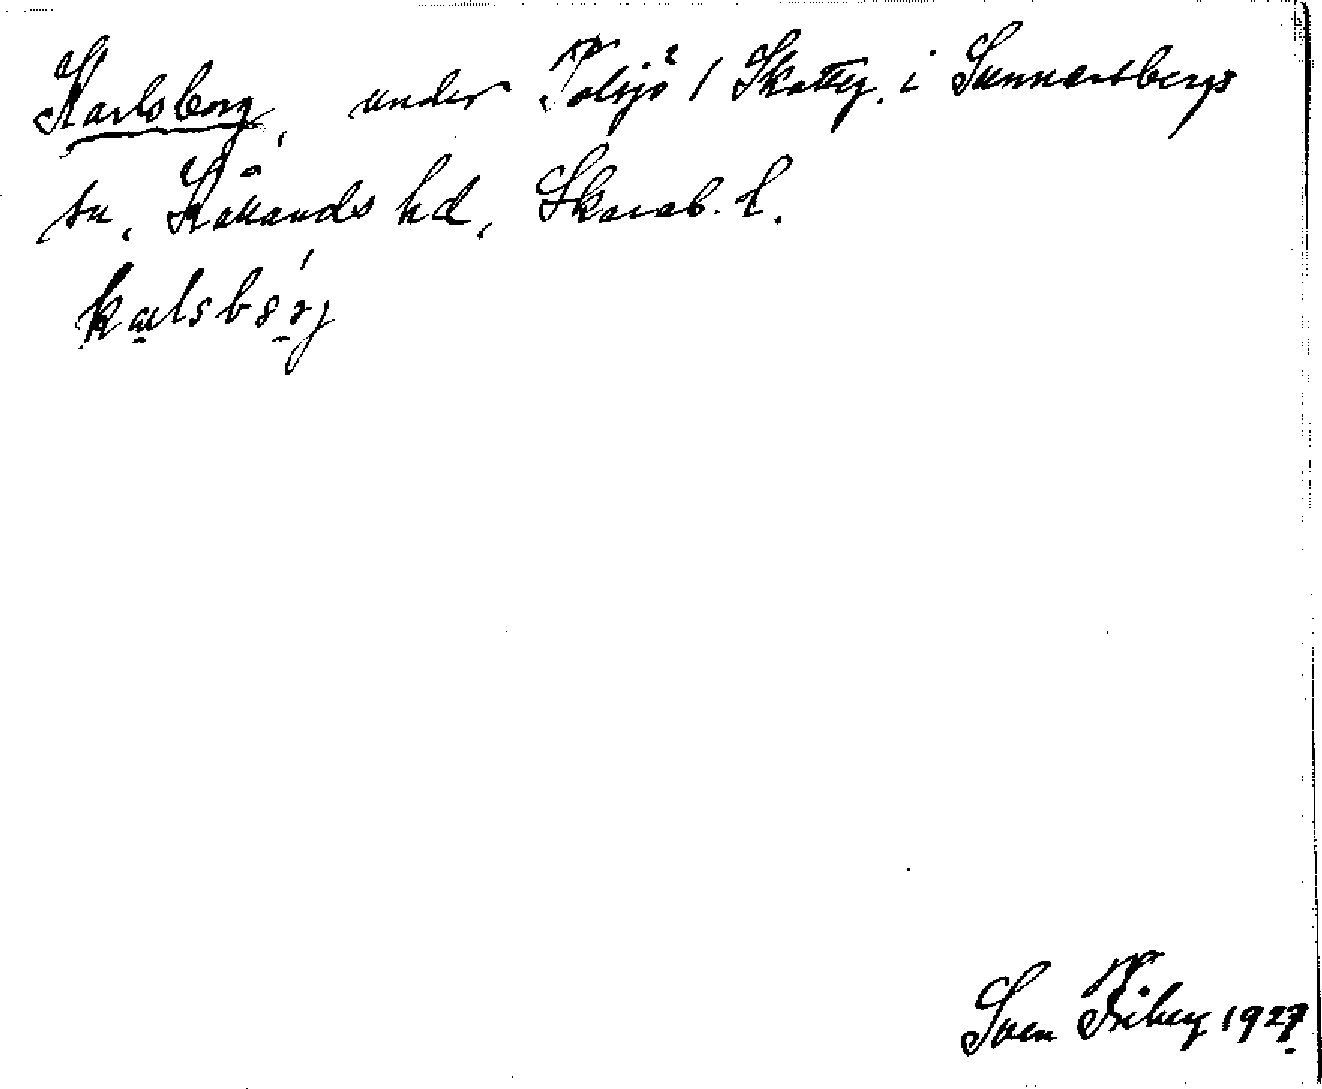 Karlsborg, under Tolsjö 1 Skatteg. i Sunnersbergs
sn, Kållands hd, Skarab. l.
Sven Friberg 1927